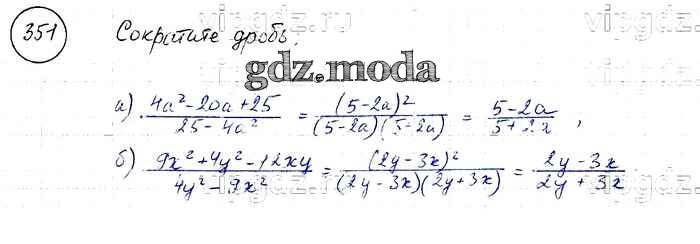 351 Сократите дробь.
gdz.moda
а) (4a² - 20a + 25)/(25 - 4a²) = (5 - 2a)²/((5 - 2a)(5 - 2a)) = (5 - 2a)/(5 + 2x) ,
б) (9x² + 4y² - 12xy)/(4y² - 9x²) = (2y - 3x)²/((2y - 3x)(2y + 3x)) = (2y - 3x)/(2y + 3x)